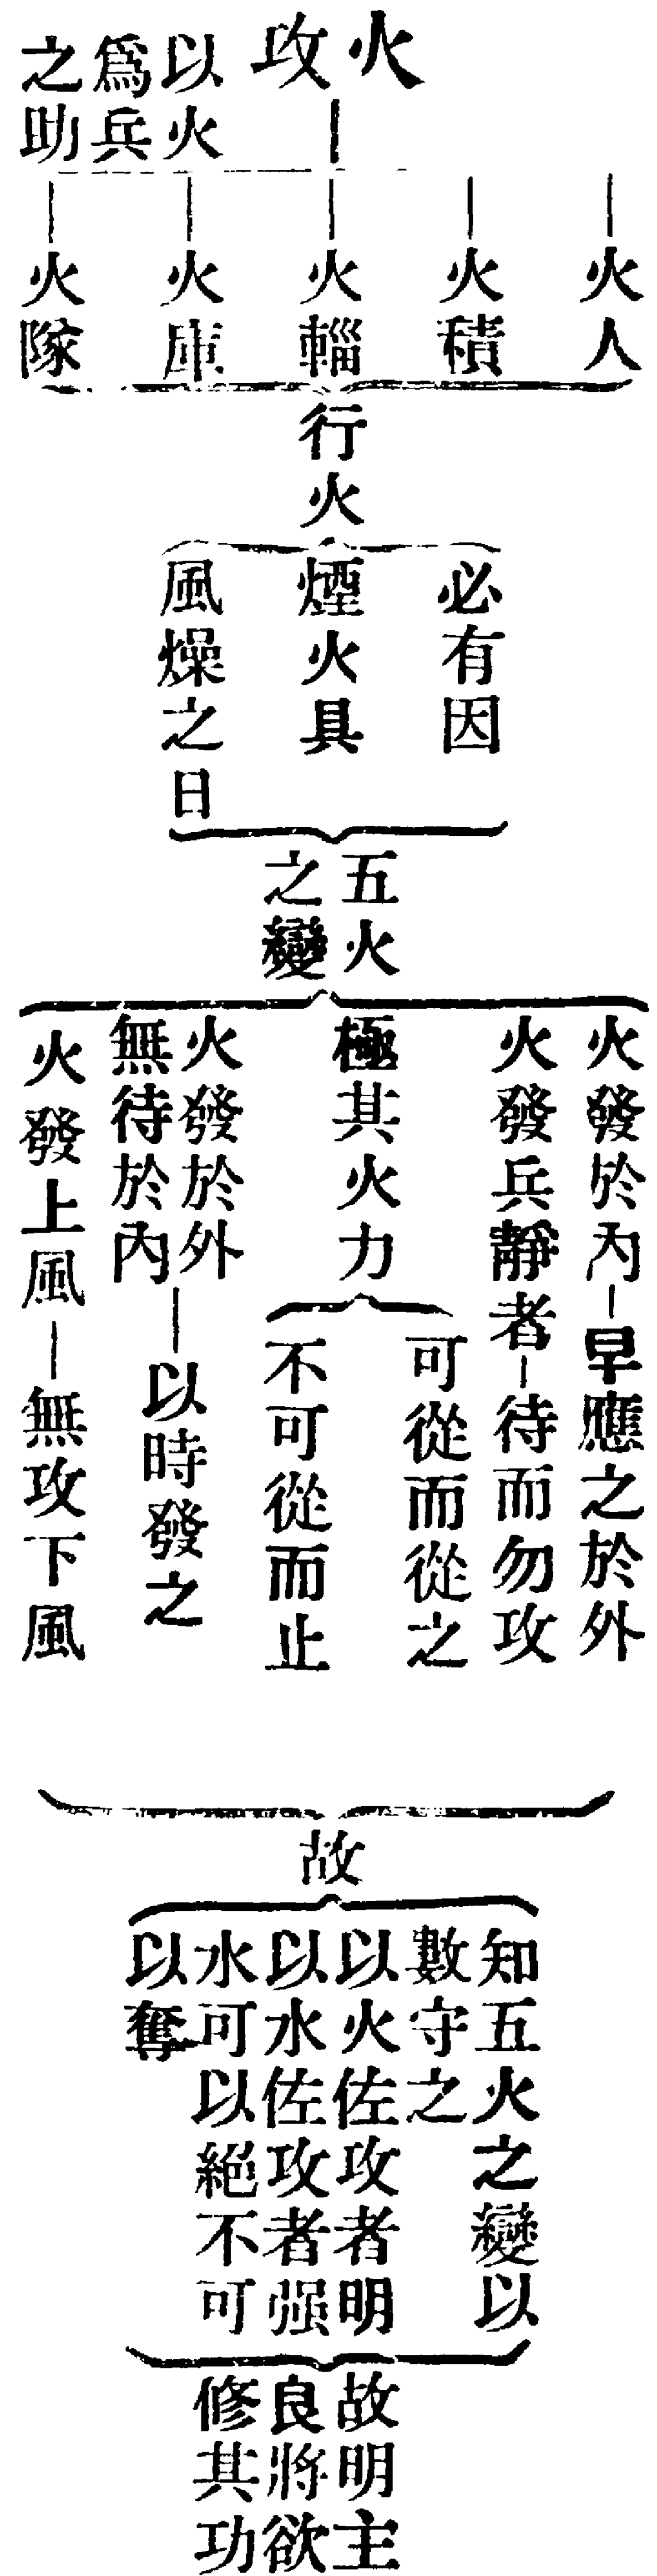 火攻
以火
爲兵
之助
火人
火積
火輜
火庫
火隊
行火
必有因
煙火具
風燥之日
五火
之變
火發於內－早應之於外
火發兵靜者－待而勿攻
極其火力
可從而從之
不可從而止
火發於外
無待於內
以時發之
火發上風－無攻下風
故
知五火之變以
數守之
以火佐攻者明
以水佐攻者强
水可以絕不可
以奪
故明主
良將欲
修其功